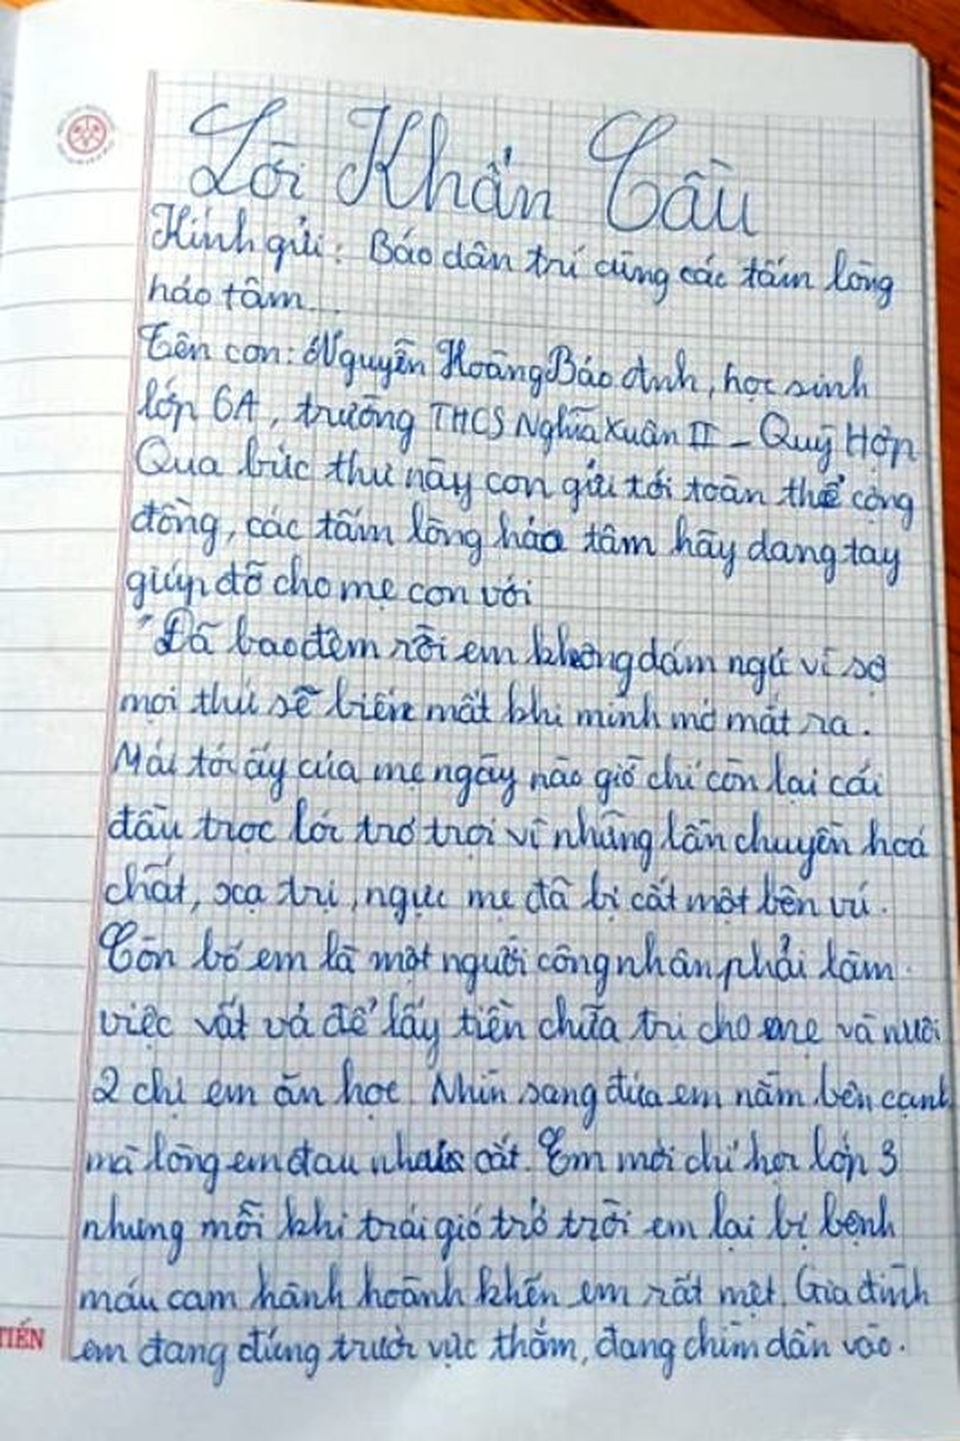 Lời Khẩn Cầu
Kính gửi: Báo dân trí cùng các tấm lòng
hảo tâm...
Tên con: Nguyễn Hoàng Bảo Anh, học sinh
lớp 6A, trường THCS Nghĩa Xuân II - Quỳ Hợp
Qua bức thư này con gửi tới toàn thể cộng
đồng, các tấm lòng hảo tâm hãy dang tay
giúp đỡ cho mẹ con với
"Đã bao đêm rồi em không dám ngủ vì sợ
mọi thứ sẽ biến mất khi mình mở mắt ra.
Mái tóc ấy của mẹ ngày nào giờ chỉ còn lại cái
đầu trọc lóc trơ trọi vì những lần chuyền hoá
chất, xạ trị, ngực mẹ đã bị cắt một bên vú.
Còn bố em là một người công nhân phải làm
việc vất vả để lấy tiền chữa trị cho mẹ và nuôi
2 chị em ăn học. Nhìn sang đứa em nằm bên cạnh
mà lòng em đau như cắt. Em mới chỉ học lớp 3
nhưng mỗi khi trái gió trở trời em lại bị bệnh
máu cam hành hoành khến em rất mệt. Gia đình
em đang đứng trước vực thẳm, đang chìm dần vào.
TIẾN